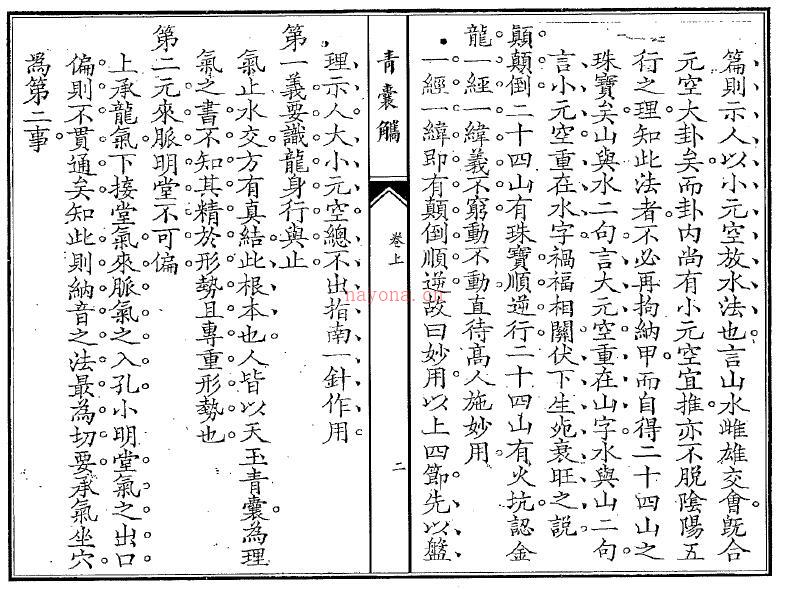 篇則示人以小元空放水法也言山水雌雄交會既合
元空大卦矣而卦内尚有小元空宜推亦不脱陰陽五
行之理知此法者不必再拘納甲而自得二十四山之
珠寶矣山與水二句言大元空重在山字水與山二句
言小元空重在水字禍福相關伏下生死衰旺之說
顛顛倒二十四山有珠寶順逆行二十四山有火坑認金
龍一經一緯義不窮動不動直待高人施妙用
一經一緯即有顛倒順逆故曰妙用以上四節先以盤
青囊觹
卷上
二
理示人大小元空總不出指南一針作用
第一義要識龍身行與止
氣止水交方有真結此根本也人皆以天玉青囊為理
氣之書不知其精於形勢且專重形勢也
第二元來脈明堂不可偏
上承龍氣下接堂氣來脈氣之入孔小明堂氣之出口
偏則不貫通矣知此則納音之法最為切要承氣坐穴
為第二事
nayona.cn